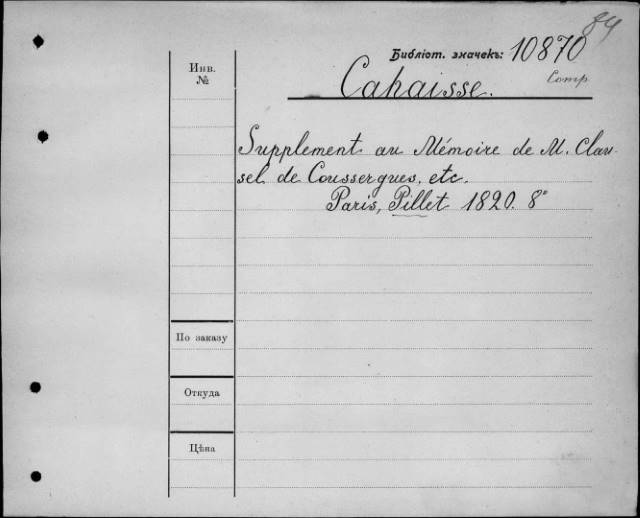 84
Библіот. значекъ: 10870
Comp.
Cahaisse.
Инв.
№
Supplement au Mémoire de M. Clau-
sel de Coussergues, etc.
Paris, Pillet 1820. 8°
По заказу
Откуда
Цѣна